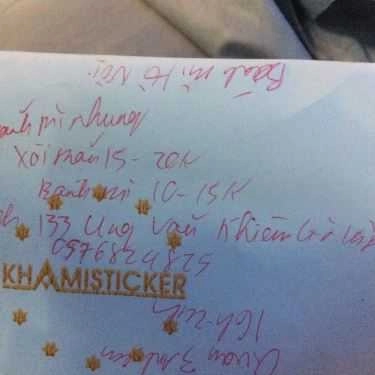 Bánh mì Hà Nội
bánh mì nhung
xôi mặn 15 - 20K
Bánh mì 10 - 15K
133 Ung Văn Khiêm
0976824825
KHAMISTICKER
16h-21h
Quán 3 Miền